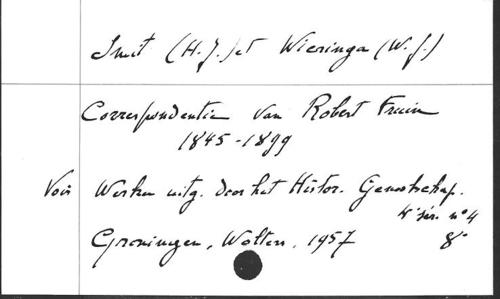 Smit (H.J.) et Wieringa (W.J.)
Correspondentie van Robert Fruin
1845-1899
Voir Werken uitg. door het Histor. Genootschap.
4e sér. n° 4
Groningen, Wolters, 1957 8°